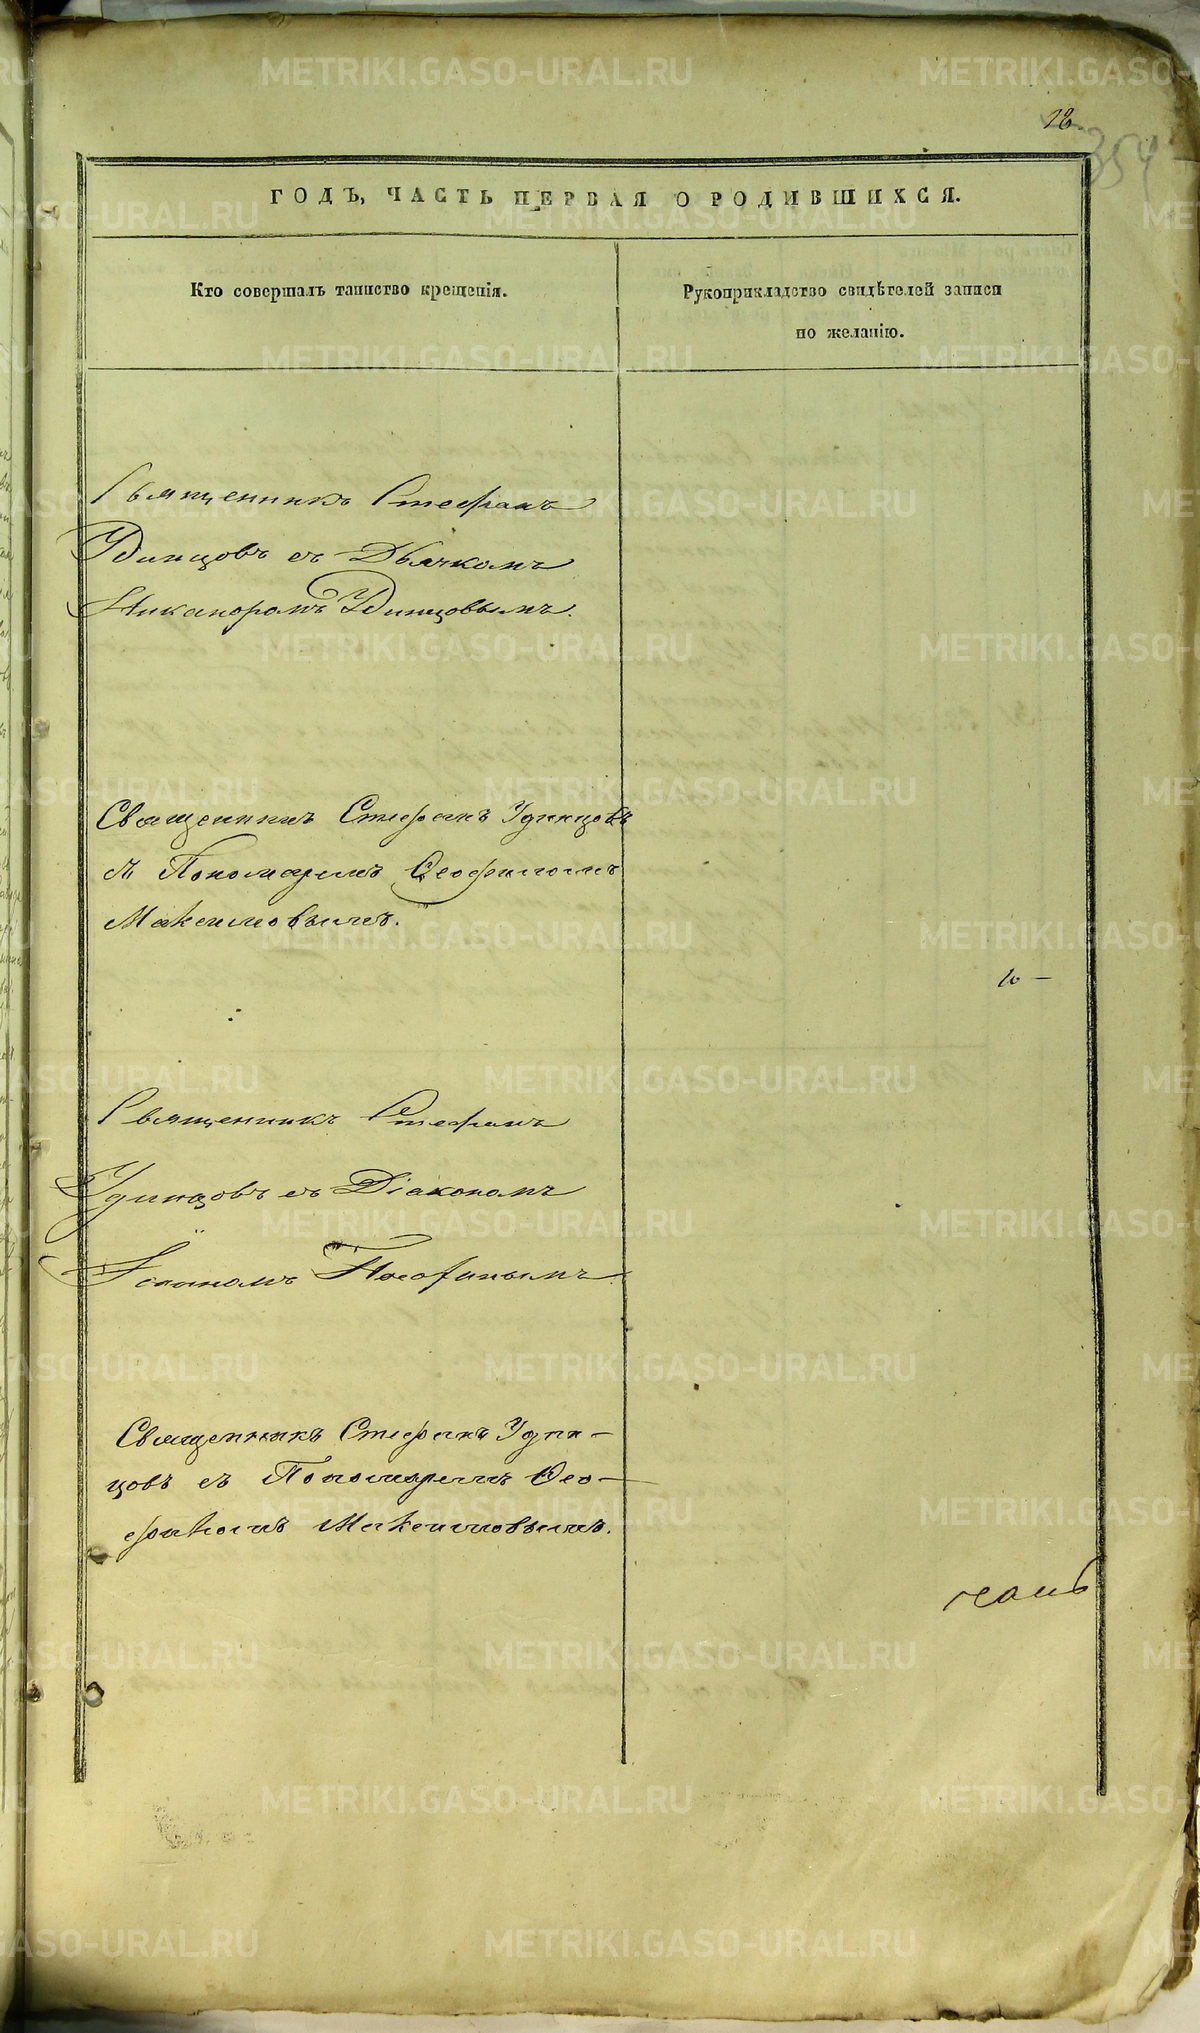 12
354
ГОДЪ, ЧАСТЬ ПЕРВАЯ О РОДИВШИХСЯ.
Кто совершалъ таинство крещенія.
Рукоприкладство свидѣтелей записи
по желанію.
Священникъ Стефанъ
Удинцовъ съ Дьячкомъ
Никаноромъ Удинцовымъ.
Священникъ Стефанъ Удинцовъ
съ Пономаремъ Ѳеофиломъ
Максимовымъ.
Священникъ Стефанъ
Удинцовъ съ Діакономъ
Іоанномъ
Священникъ Стефанъ Удин-
цовъ съ Пономаремъ Ѳео-
филомъ Максимовымъ.
METRIKI.GASO-URAL.RU